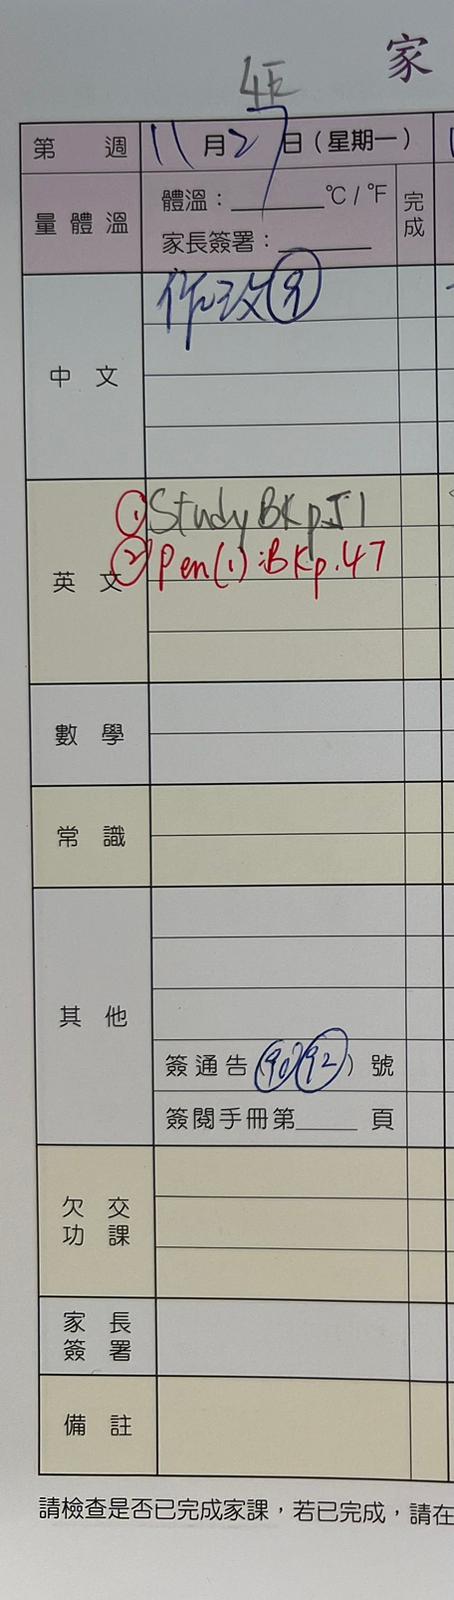 家
4E
第 週 11月27日(星期一)
量體溫 體溫：______°C / °F 完成
家長簽署：______
中文 作改⑨
英文 ① Study BK p.51
② Pen(1):BK p.47
數學
常識
其他
簽通告(90 92)號
簽閱手冊第____頁
欠交功課
家長簽署
備註
請檢查是否已完成家課，若已完成，請在